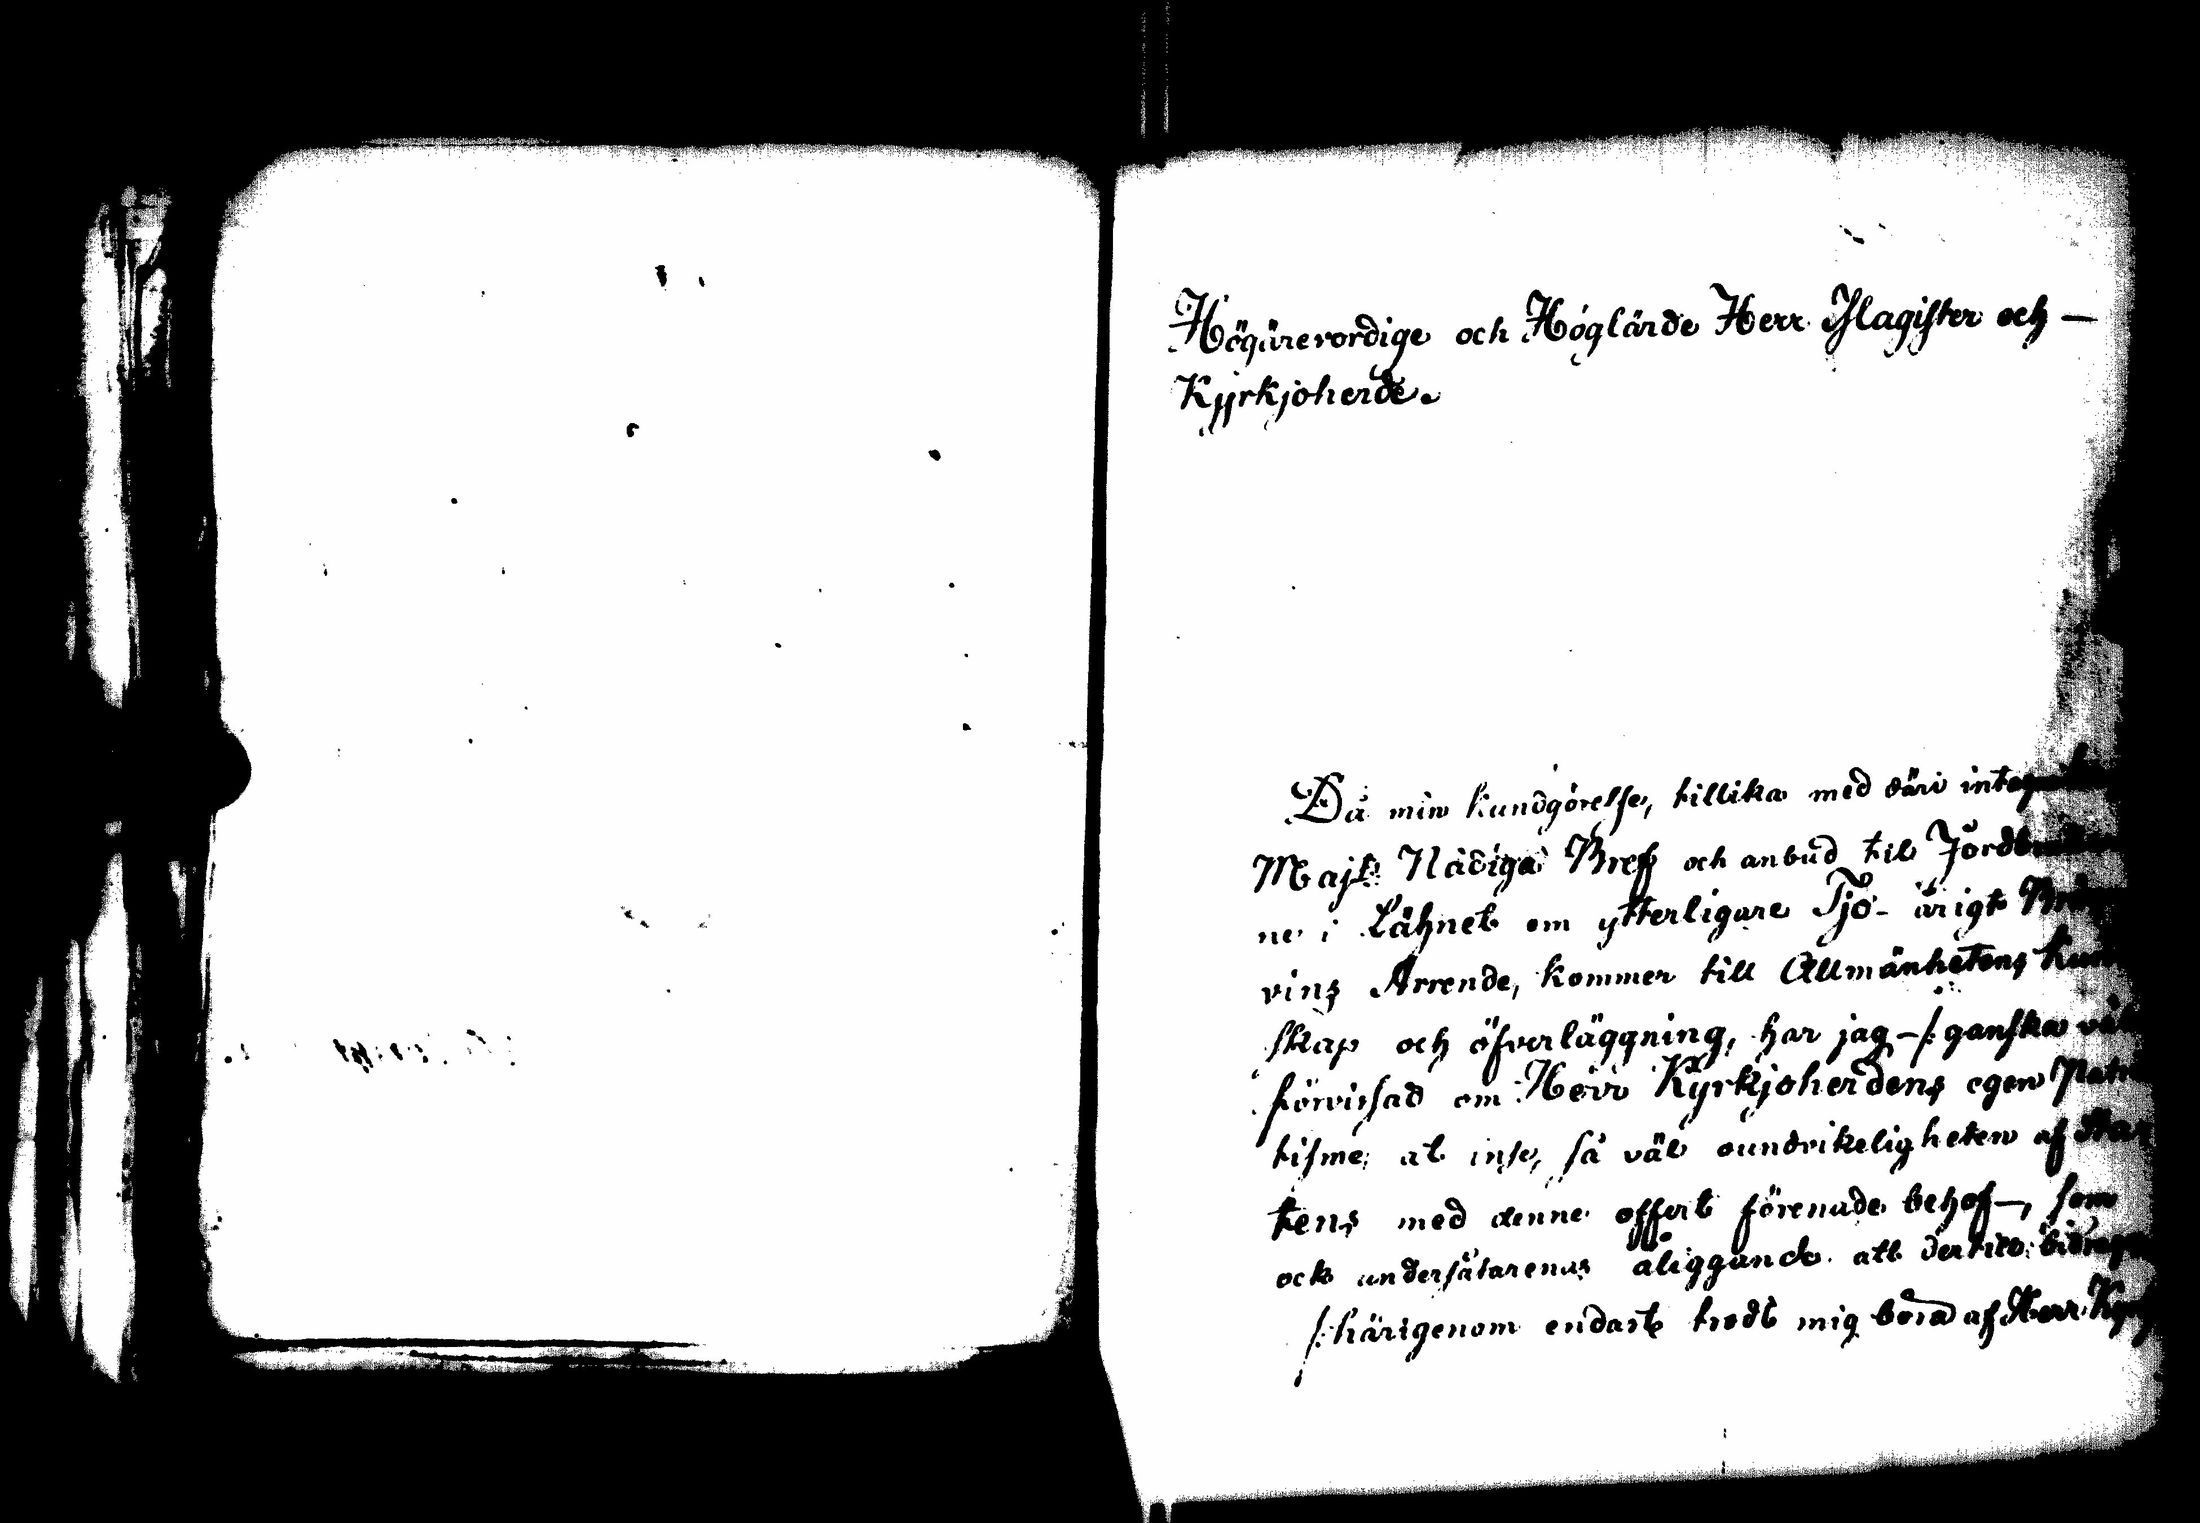 Högärevordige och Höglärde Herr Magister och —
Kyrkjoherde.
Då min kundgörelse, tillika med däri
Majts Nådiga Bref och anbud til
ne i Lähnet om ytterligare Tjo-årigt
vins Arrende, kommer till Allmänhetens
skap och öfverläggning, har jag -/: ganska
förvissad om Herr Kyrkjoherdens egen
tisme at inse, så väl oundvikeligheten af
tens med denne offert förenade behof—, som
ock undersåtarenas åliggande att dertil
/: härigenom endast trodt mig böra af Herr